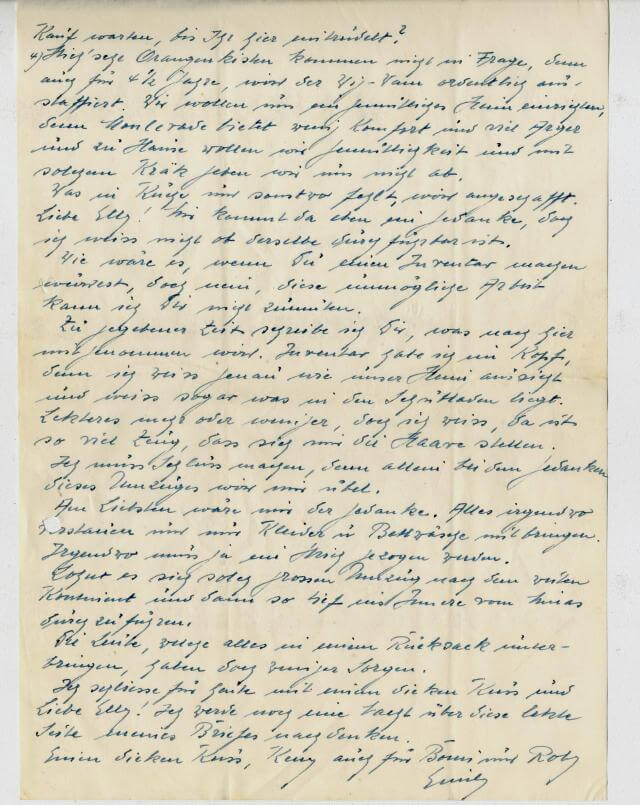 Kauf warten, bis Ihr hier eintrudelt?
4) diese Orangenkisten kommen nicht in Frage, denn
auch für 4½ Jahre, wird der ordentlich aus-
staffiert. Wir wollen uns ein gemütliches Heim einrichten,
denn Monlevade bietet wenig Komfort und viel Ärger
und zu Hause wollen wir Gemütlichkeit und mit
solchem Kräk geben wir uns nicht ab.
Was in Küche und sonstwo fehlt, wird angeschafft.
Liebe Elly! Mir kommt da eben ein Gedanke, doch
ich weiss nicht ob derselbe durchführbar ist.
Wie wäre es, wenn Du einen Inventar machen
würdest, doch nein, diese unmögliche Arbeit
kann ich Dir nicht zumuten.
Zu gegebener Zeit schreibe ich Dir, was nach hier
mitgenommen wird. Inventar habe ich im Kopf,
denn ich weiss genau wie unser Heim aussieht
und weiss sogar was in den Schubladen liegt.
Letzteres mehr oder weniger, doch ich weiss, da ist
so viel Zeug, dass sich mir die Haare stellen.
Ich muss Schluss machen, denn allein bei dem Gedanken
dieses Umzuges wird mir übel.
Am Liebsten wäre mir der Gedanke. Alles irgendwo
verstauen und nur Kleider u Bettwäsche mitbringen.
Irgendwo muss ja ein Strich gezogen werden.
Lohnt es sich solch grossen Umzug nach dem weiten
Kontinent und dann so tief ins Innere von Minas
durchzuführen.
Die Leute, welche alles in einem Rucksack unter-
bringen, haben doch weniger Sorgen.
Ich schliesse für heute mit einem dicken Kuss und
Liebe Elly! Ich werde noch eine Nacht über diese letzte
Seite meines Briefes nachdenken.
Einen dicken Kuss, auch für und
Emil